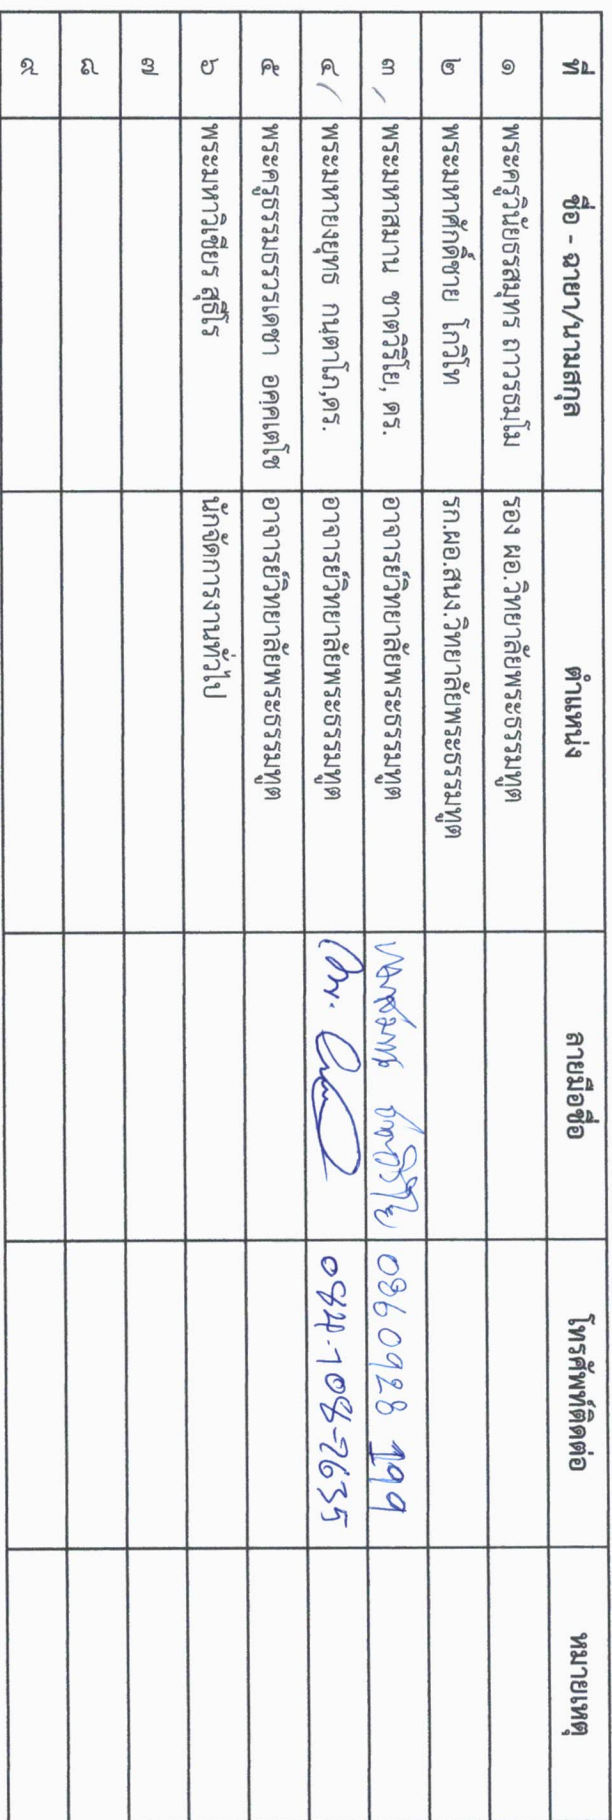 ที่ ชื่อ - ฉายา/นามสกุล ตำแหน่ง ลายมือชื่อ โทรศัพท์ติดต่อ หมายเหตุ
๑ พระครูวินัยธรสมุทร ถาวรธมฺโม รอง ผอ.วิทยาลัยพระธรรมทูต
๒ พระมหาศักดิ์ชาย โกวิโท รก.ผอ.สนง.วิทยาลัยพระธรรมทูต
๓ พระมหาสมาน ชาตวิริโย, ดร. อาจารย์วิทยาลัยพระธรรมทูต 0860928 199
๔ พระมหายงยุทธ กนฺตาโภ,ดร. อาจารย์วิทยาลัยพระธรรมทูต 084-108-7635
๕ พระครูธรรมธรวรเดชา อคฺคเตโช อาจารย์วิทยาลัยพระธรรมทูต
๖ พระมหาวิเชียร สุธีโร นักจัดการงานทั่วไป
๗
๘
๙